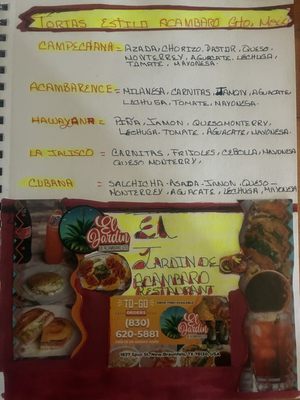 TORTAS ESTILO ACAMBARO Gto, Mex
CAMPECHANA = AZADA, CHORIZO, PASTOR, QUESO
MONTERREY, AGUACATE, LECHUGA,
TOMATE, MAYONESA.
ACAMBARENCE = MILANSA, CARNITAS, JAMON, AGUACATE
LECHUGA, TOMATE, MAYONESA.
HAWAYANA = PIÑA, JAMON, QUESO MONTERREY,
LECHUGA, TOMATE, AGUACATE, MAYONESA.
LA JALISCO = CARNITAS, FRIJOLES, CEBOLLA, MAYONESA
QUESO MONTERREY,
CUBANA = SALCHICHA-ASADA-JAMON, QUESO-
MONTERREY, AGUACATE, LECHUGA, MAYONESA
El Jardin
EL
JARDIN DE
ACAMBARO
RESTAURANT
TO-GO
ORDERS
(830)
620-5881
El Jardin